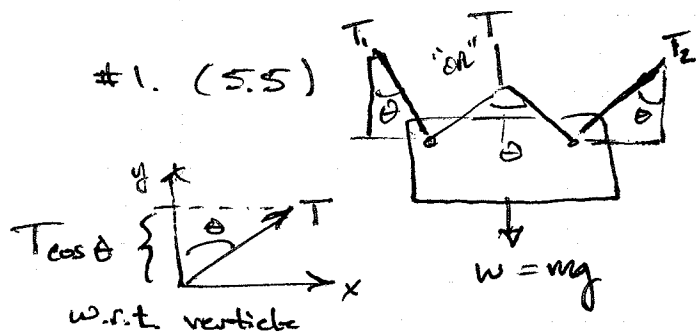 #1. (5.5)
T₁
"OR"
T
T₂
θ
θ
θ
w = mg
y
T cos θ {
θ
T
x
w.r.t. verticle